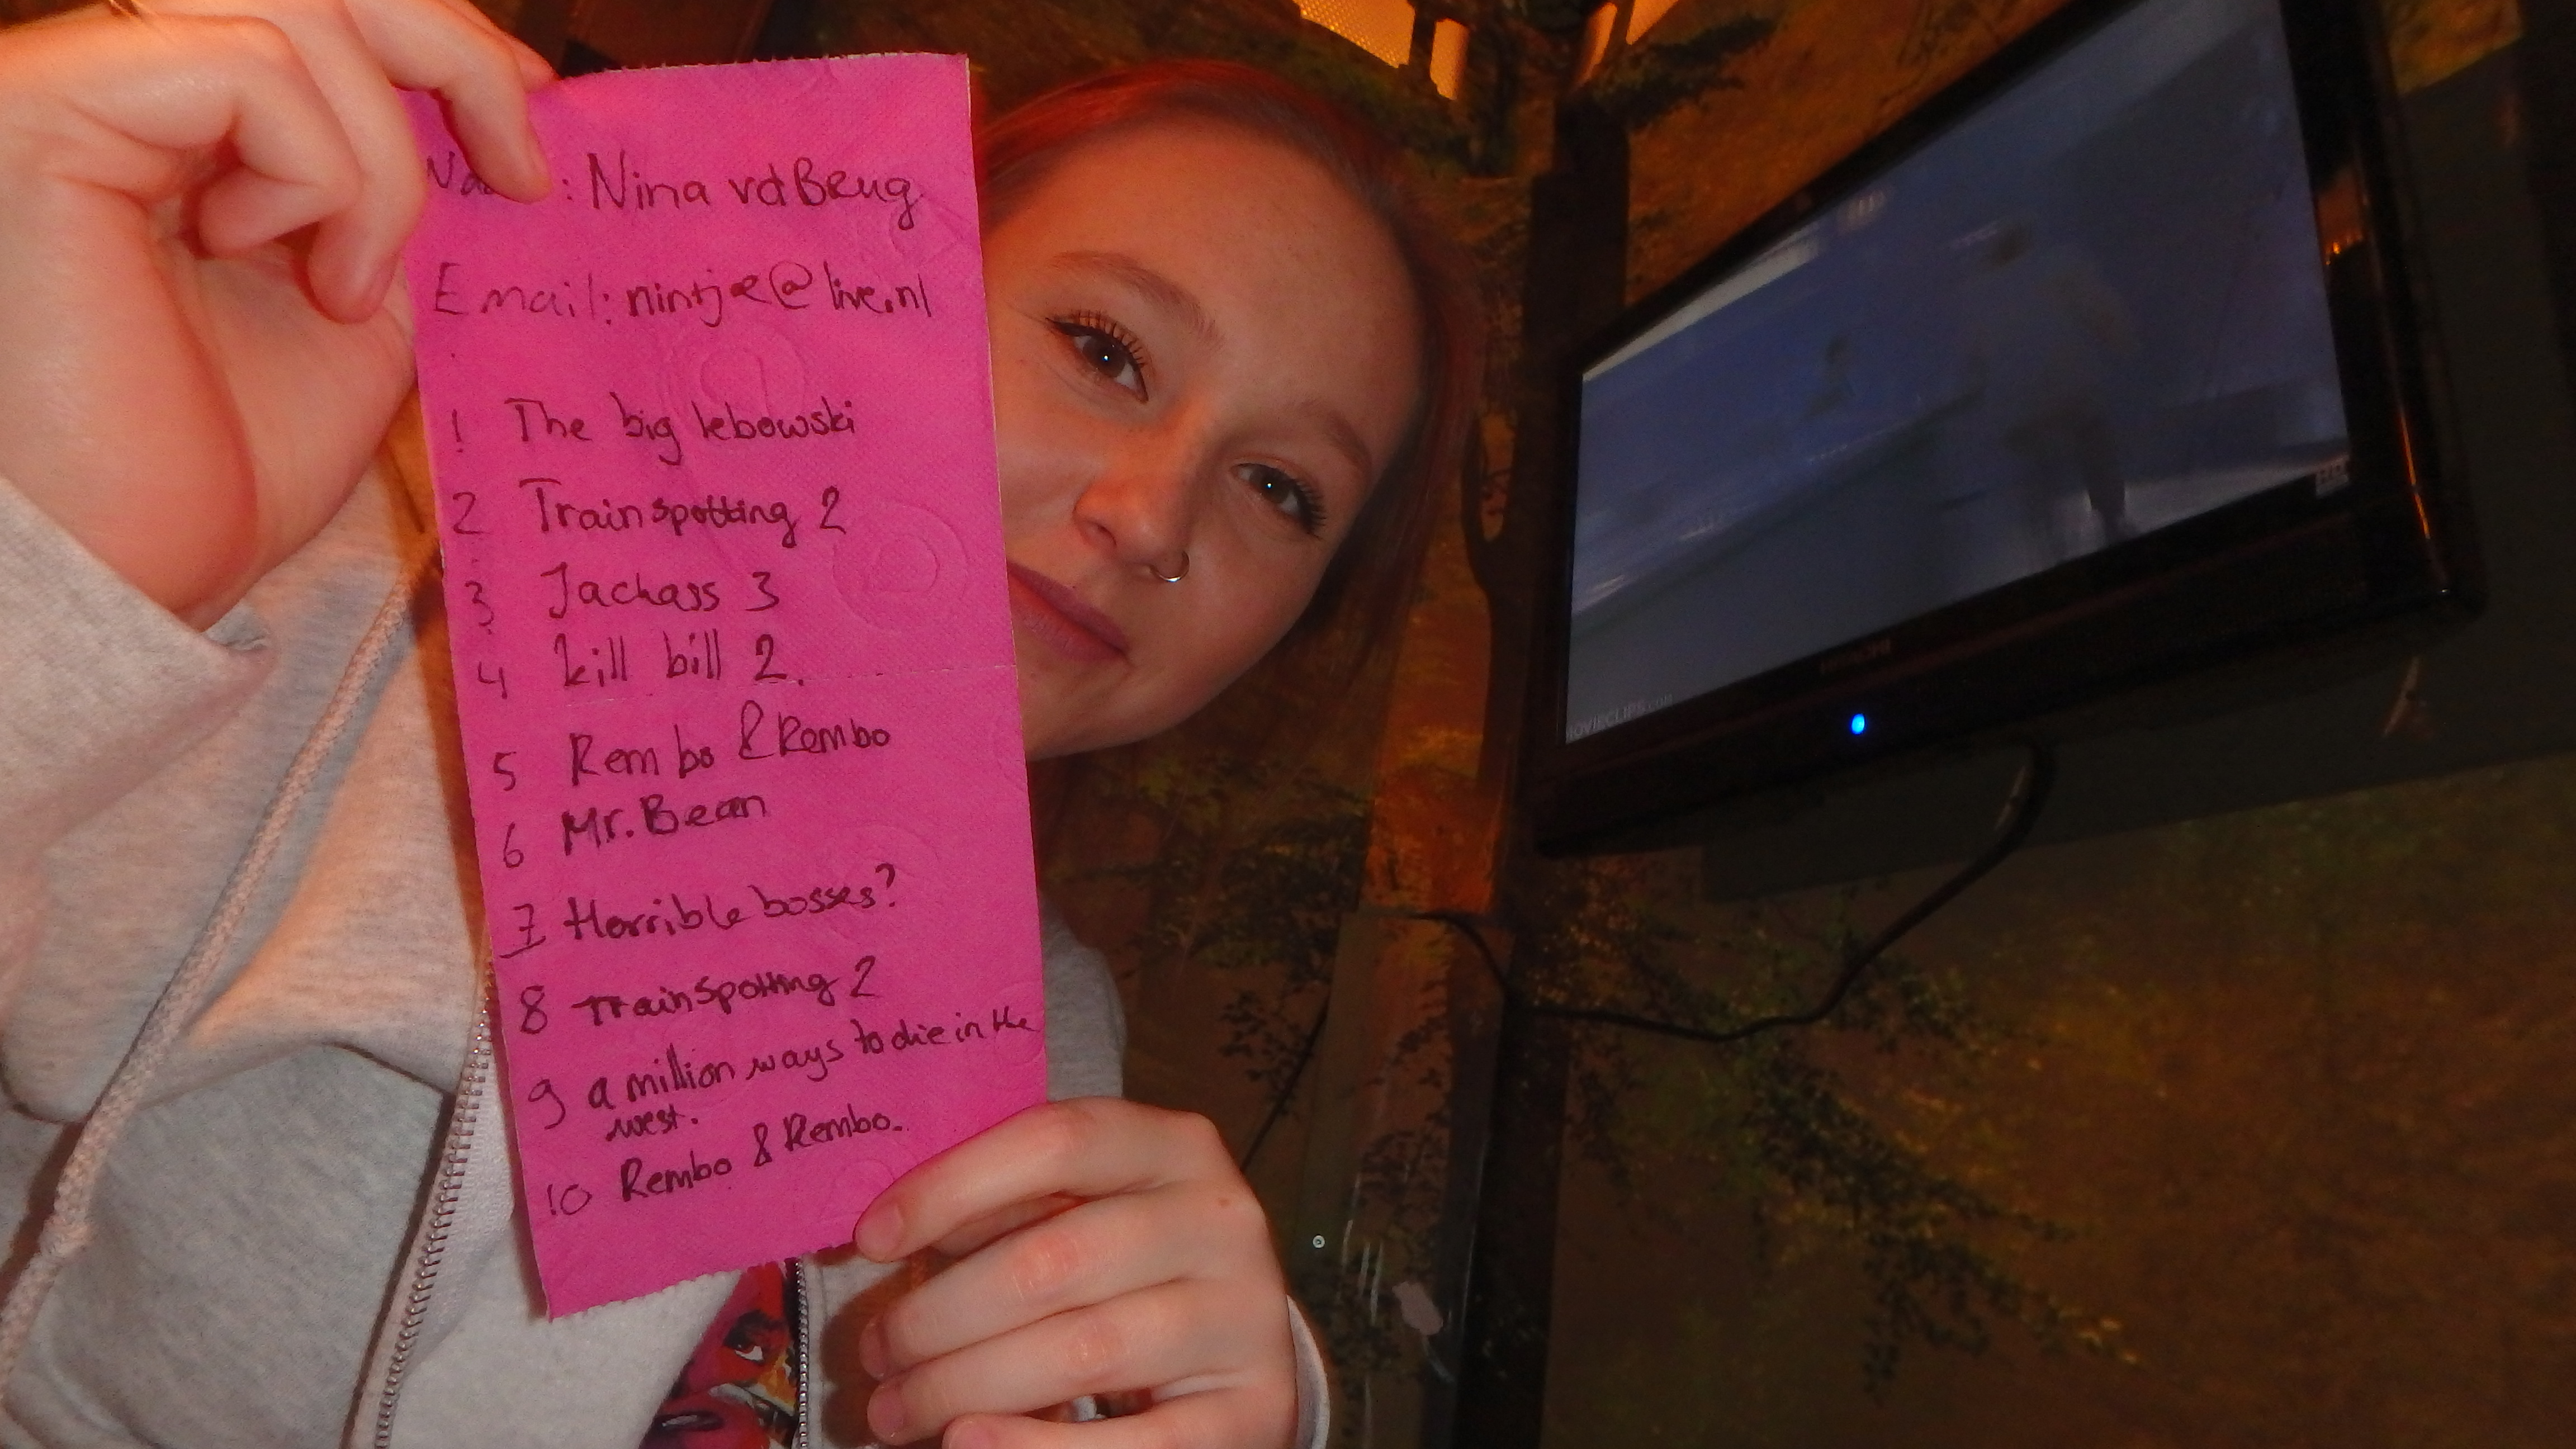 : Nina vd Beug
Email: nintje@live.nl
1 The big lebowski
2 Trainspotting 2
3 Jackass 3
4 kill bill 2.
5 Rembo & Rembo
6 Mr. Bean
7 Horrible bosses?
8 Trainspotting 2
9 a million ways to die in the
west.
10 Rembo & Rembo.
MOVIECLIPS.COM
HITACHI